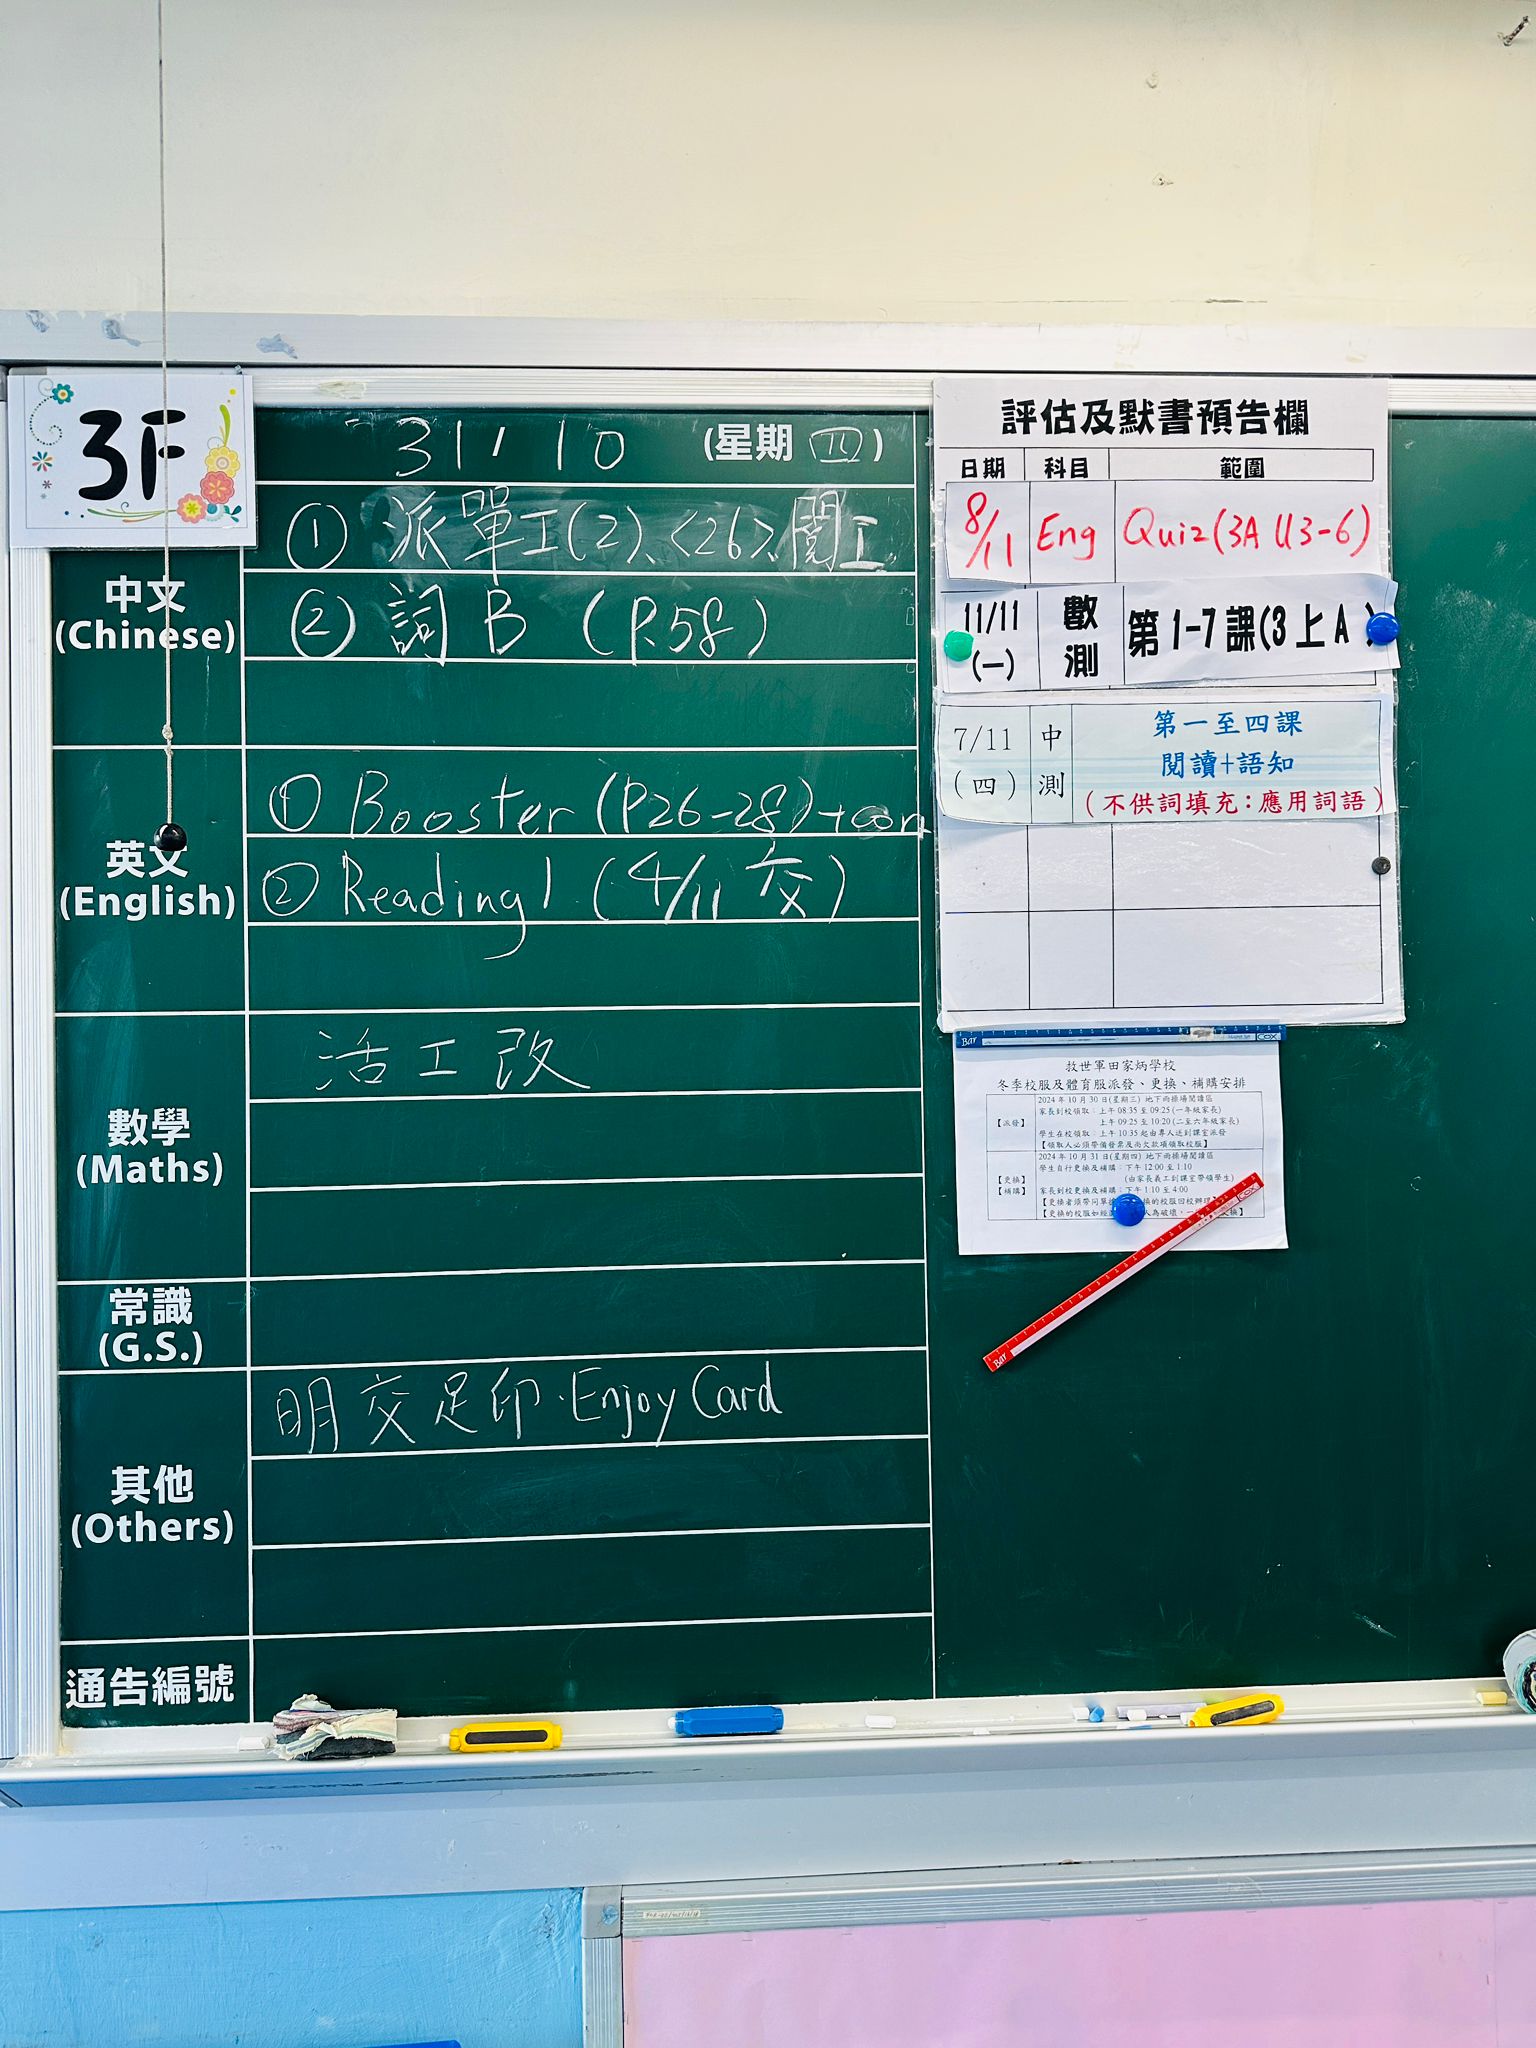 3F
31/10 (星期 四)
中文
(Chinese)
① 派單工(2)、<26>、閱工
② 詞 B (P.58)
英文
(English)
① Booster (P26-28)+corr
② Reading 1 (4/11 交)
數學
(Maths)
活工改
常識
(G.S.)
其他
(Others)
明交足印·Enjoy Card
通告編號
評估及默書預告欄
日期 科目 範圍
8/11 Eng Quiz(3A U3-6)
11/11 (一) 數測 第1-7課(3上A)
7/11 (四) 中測 第一至四課
閱讀+語知
(不供詞填充:應用詞語)
Bar COX
救世軍田家炳學校
冬季校服及體育服派發、更換、補購安排
【派發】
2024年10月30日(星期三) 地下雨操場閱讀區
家長到校領取:上午08:35至09:25(一年級家長)
上午09:25至10:20(二至六年級家長)
學生在校領取:上午10:35起由專人送到課室派發
【領取人必須帶備發票及尚欠款項領取校服】
【更換】
【補購】
2024年10月31日(星期四) 地下雨操場閱讀區
學生自行更換及補購:下午12:00至1:10
(由家長義工到課室帶領學生)
家長到校更換及補購:下午1:10至4:00
【更換者須帶同單 換的校服回校辦理】
【更換的校服如經 人為破壞,一 換】
Bar COX